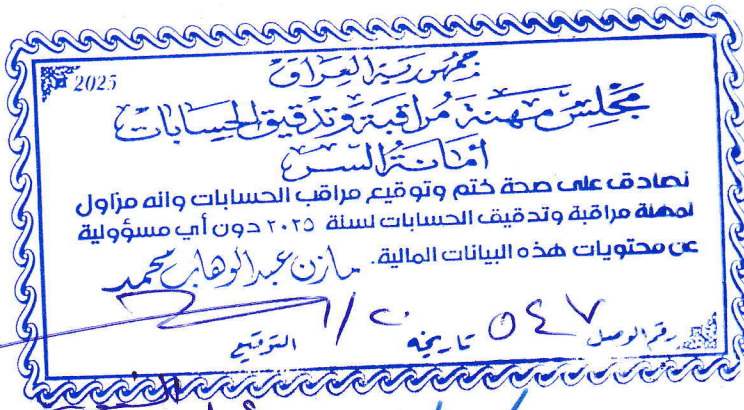 2025
جمهورية العراق
مجلس مهنة مراقبة وتدقيق الحسابات
أمانة السر
نصادق على صحة ختم وتوقيع مراقب الحسابات وانه مزاول
لمهنة مراقبة وتدقيق الحسابات لسنة ٢٠٢٥ دون أي مسؤولية
عن محتويات هذه البيانات المالية. مازن عبد الوهاب محمد
رقم الوصل ٥٤٧ تاريخه التوقيع